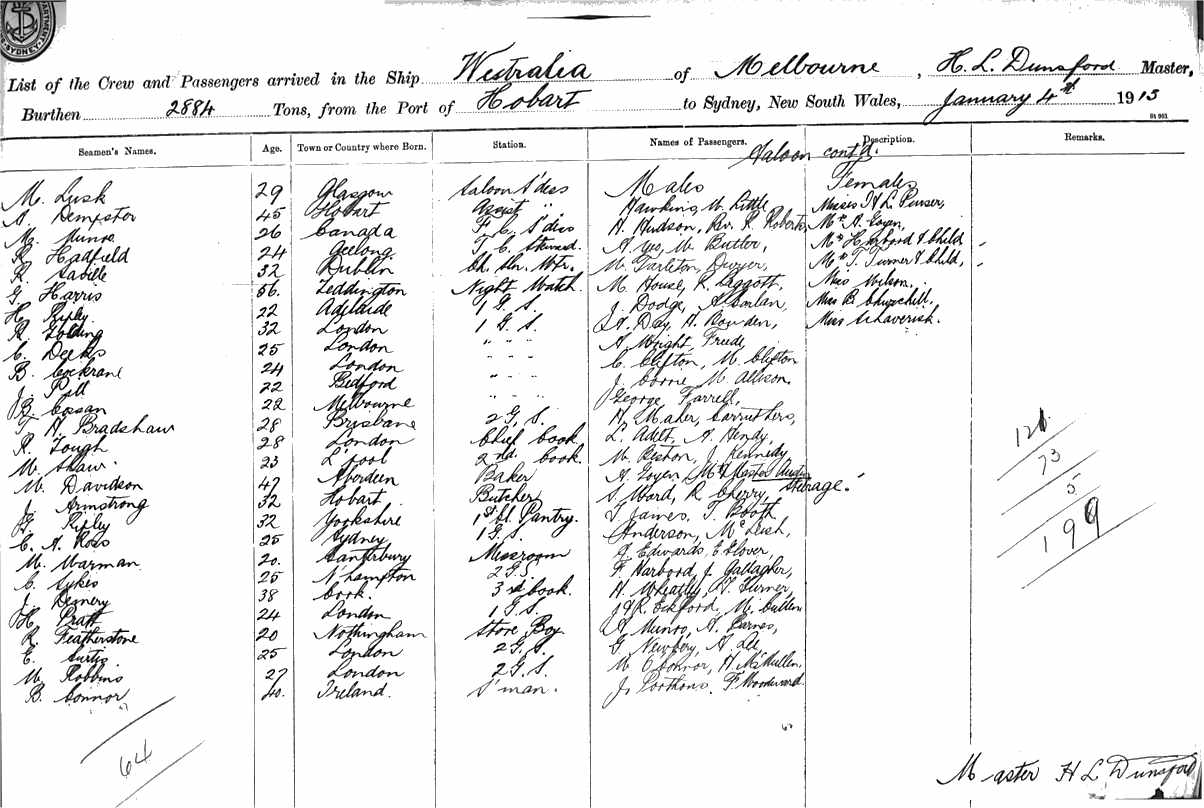 DEPARTMENT SYDNEY
List of the Crew and Passengers arrived in the Ship Westralia of Melbourne, H. L. Dunsford Master,
Burthen 2884 Tons, from the Port of Hobart to Sydney, New South Wales, January 4th 1913
Seamen's Names. Age. Town or Country where Born. Station. Names of Passengers. Description. Remarks.
Saloon contd.
M. Lusk 29 Glasgow Saloon S'dess Males Females
A. Dempster 45 Hobart Assist " Hawkins, W. Little, Misses H L Purser,
M. Munro 26 Canada F. C. S'dess H. Hudson, Rev. R. Roberts, Mrs A. Goyen,
R. Hadfield 24 Geelong T. C. Steward A. W. Butler, Mrs Harbord & Child
R. Savelle 32 Dublin Ch. Sln. Wtr. W. Tarleton, Dwyer, Mrs T. Turner & Child,
G. Harris 56. Teddington Night Watch M. House, R. Daggott, Miss Wilson.
H. Ripley. 22 Adelaide 1 G. S. J. Dodge, Miss B. Churchill,
R. Golding 32 London 1 G. S. A. Day, H. Bowden, Miss
C. Deeks 25 London " " " A. Wright, Freede,
B. Cockrane 24 London " " " C. Clifton, M. Clifton
J. Pill 22 Bedford " " " J. Corne, M. Allison,
J. B. Cossan 22 Melbourne " " " George Farrell,
T. H. Bradshaw 28 Brisbane 2 G. S. H. Maher, Carruthers,
R. Tough 28 London Chief Cook. L. Adet, A. Hendy,
W. Shaw. 23 L'pool 2nd. Cook. W. Beston, J. Kennedy
W. Davidson 47 Aberdeen Baker A. Goyen, Mr & Master
J. Armstrong 32 Hobart. Butcher S. Ward, R. Cherry, Steerage.
G. Ripley 32 Yorkshire 1st Cl. Pantry. J. James, T. Booth
C. A. Ross 25 Sydney 1 G. S. Anderson, McLeish,
W. Warman. 20. Canterbury Messroom A. Edwards, E. Glover,
C. Sykes 25 N'hampton 2 G. S. F. Harbord, J. Gallagher,
J. Demery 38 Cork. 3rd Cook. H. Wheatley, G. Turner,
H. Pratt 24 London 1 G. S. J & R. Eckford, M. Cullen
R. Featherstone 20 Nottingham Store Boy A. Munro, A. Barnes,
E. Curtis. 25 London 2 G. S. G. Newbery, A. Lee,
W. Robbins 27 London 2 G. S. M. O'Connor, H. McMullen,
B. Connor 40. Ireland. S'man. J. F. Woodward.
121
73
5
199
64
Master H L Dunsford